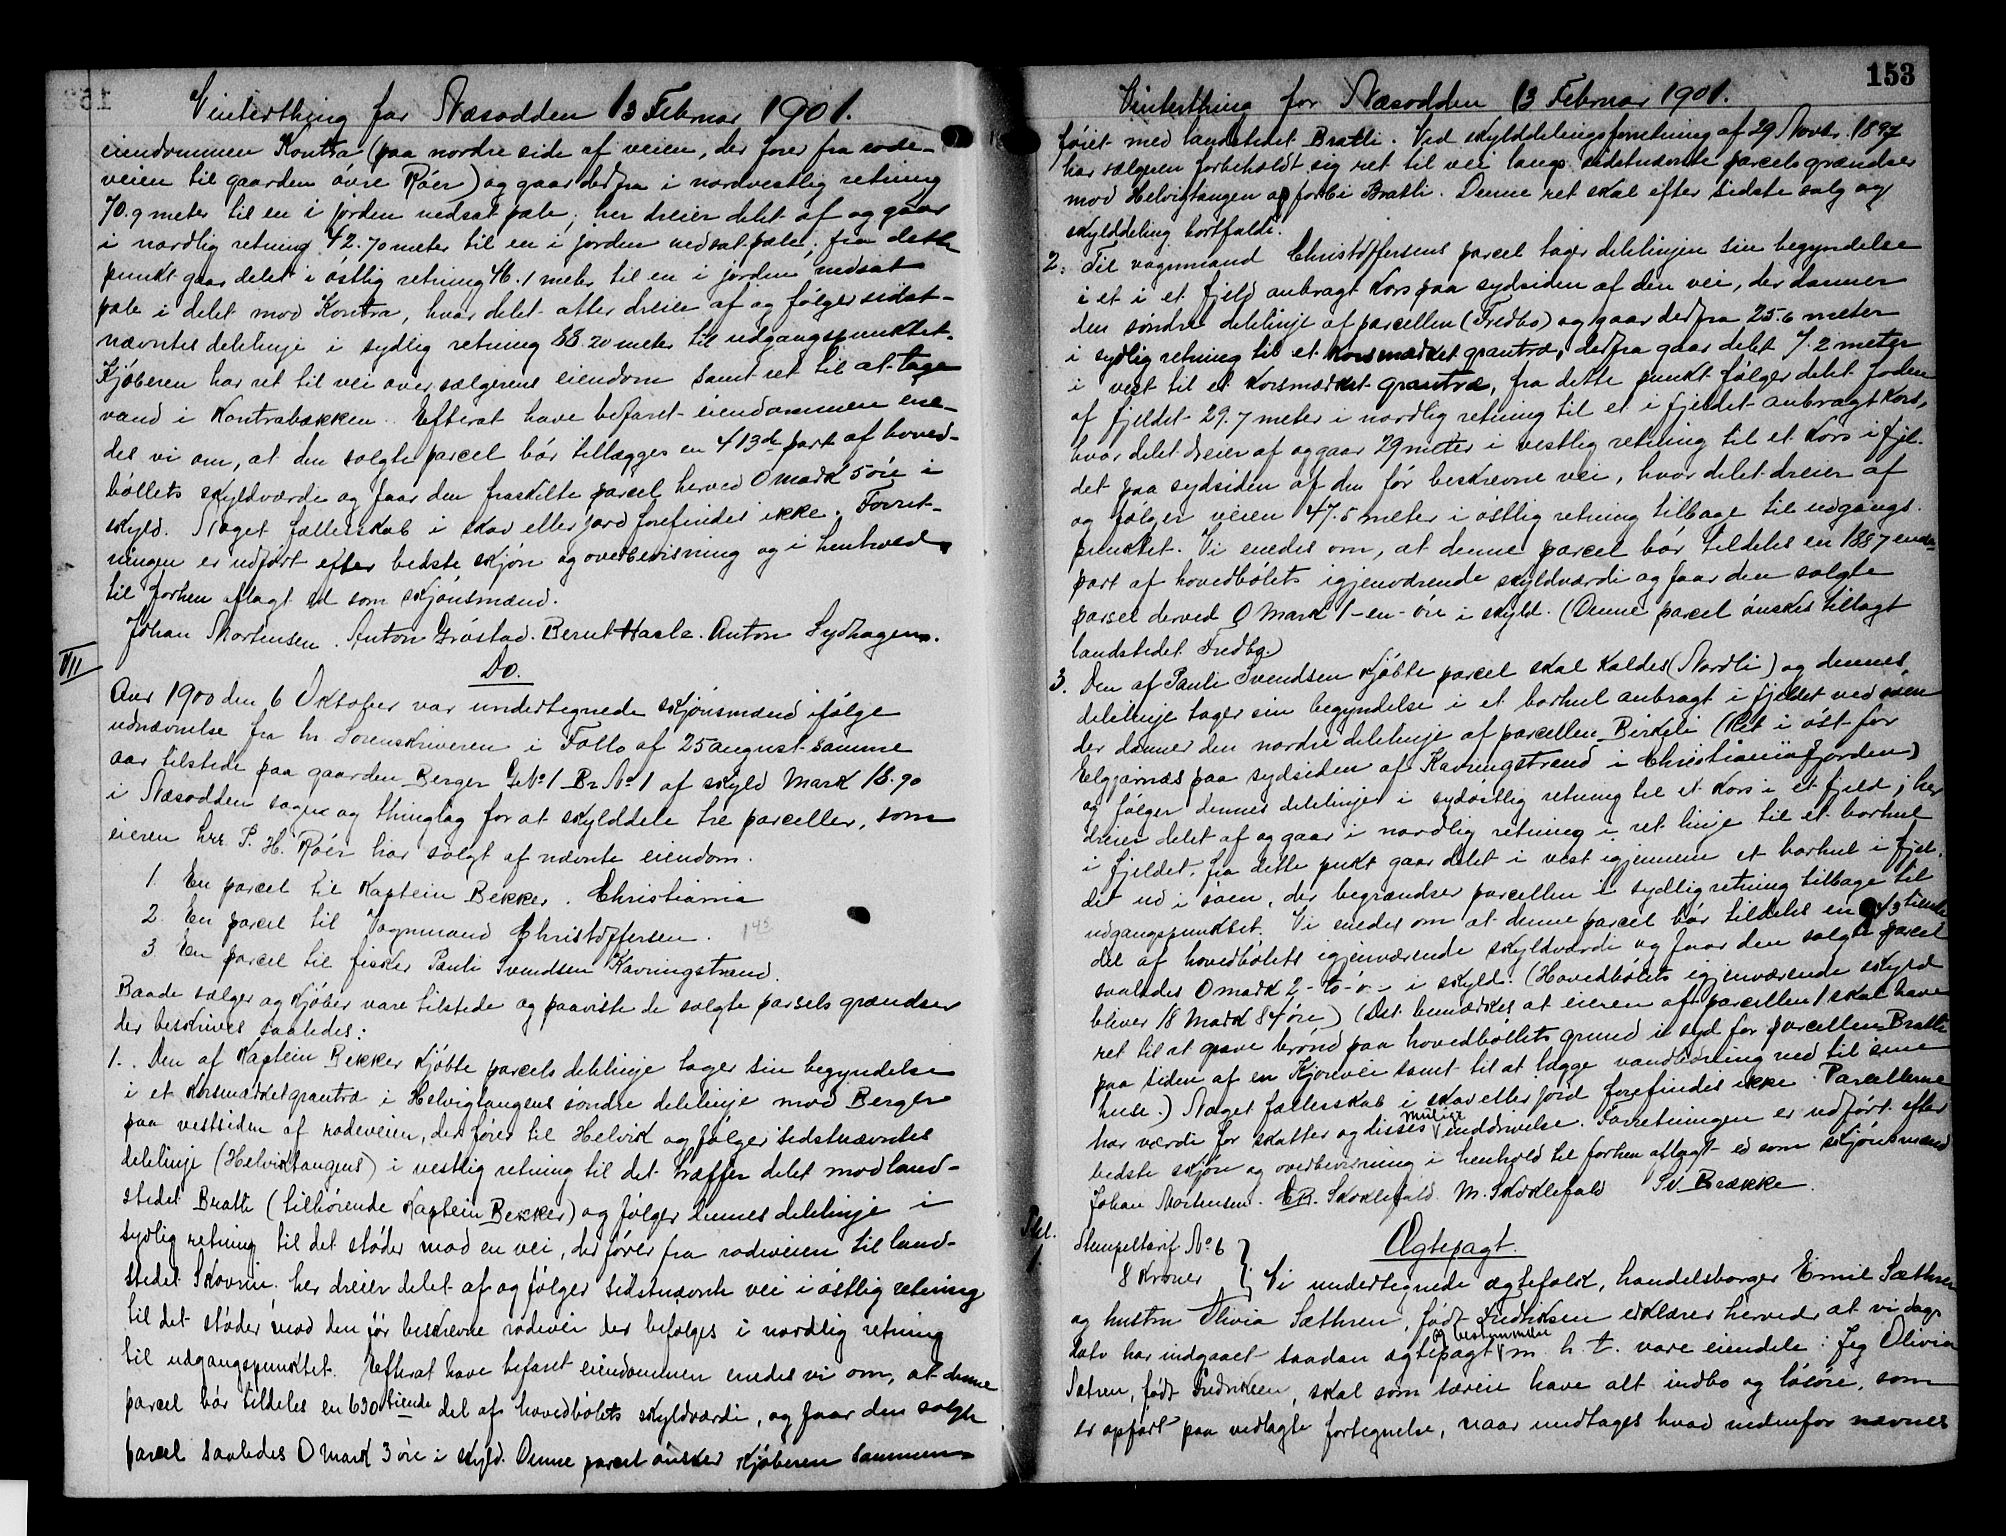 Vinterthing for Næsodden 13 Februar 1901.
eiendommen Kontra (paa nordre side af veien, der fører fra rode-
veien til gaarden øvre Røer) og gaar derfra i nordvestlig retning
70.9 meter til en i jorden nedsat pæle; her dreier delet af og gaar
i nordlig retning 42.70 meter til en i jorden nedsat pæle; fra dette
punkt gaar delet i østlig retning 46.1 meter til en i jorden nedsat
pæle i delet mod Kontra, hvor delet atter dreier af og følger sidst-
nævntes delelinje i sydlig retning 88.20 meter til udgangspunktet.
Kjøberen har ret til vei over sælgerens eiendom samt ret til at tage
vand i Kontrabækken. Efterat have befaret eiendommen ene-
des vi om, at den solgte parcel bør tillægges en 413de part af hoved-
bøllets skyldværdi og faar den fraskilte parcel herved 0 mark 5 øre i
skyld. Noget fællesskab i skov eller jord forefindes ikke. Forret-
ningen er udført efter bedste skjøn og overbevisning og i henhold
til forhen aflagt ed som skjønsmænd.
Johan Mortensen. Anton Grøstad. Bernt Hasle. Anton Sydhagen.
VII
Do.
Aar 1900 den 6 Oktober var undertegnede skjønsmænd ifølge
udnævnelse fra hr. Sorenskriveren i Follo af 25 august samme
aar tilstede paa gaarden Berger G.No 1 Br.No 1 af skyld Mark 18.90
i Næsodden sogn og thinglag for at skylddele tre parceller, som
eieren hrr. P. H. Røer har solgt af nævnte eiendom.
1. En parcel til Kaptein Bekker. Christiania
2. En parcel til Vognmand Christoffersen.
3. En parcel til fisker Pauli Svendsen Kavringstrand.
Baade sælger og kjøber vare tilstede og paaviste de solgte parcels grændser
der beskrives saaledes:
1. Den af Kaptein Bekker kjøbte parcels delelinje tager sin begyndelse
i et korsmærket grantræ i Helvigtangens søndre delelinje mod Berger
paa vestsiden af rodeveien, der fører til Helvik og følger sidstnævntes
delelinje (Helviktangens) i vestlig retning til det træffer delet mod land-
stedet Bratli (tilhørende Kaptein Bekker) og følger dennes delelinje i
sydlig retning til det støder mod en vei, der fører fra rodeveien til land-
stedet Skovrin. her dreier delet af og følger sidstnævnte vei i østlig retning
til det støder mod den før beskrevne rodevei der befølges i nordlig retning
til udgangspunktet. Efterat have befaret eiendommen enedes vi om, at denne
parcel bør tildeles en 630 tiende del af hovedbølets skyldværdi, og faar den solgte
parcel saaledes 0 mark 3 øre i skyld. Denne parcel ønsker kjøberen sammen-
153
Vinterthing for Næsodden 13 Februar 1901.
føiet med landstedet Bratli. Ved skylddelingsforretning af 29 Novbr. 1897
har sælgeren forbeholdt sig ret til vei langs sidstnævnte parcels grændser
mod Helvigtangen og forbi Bratli. Denne ret skal efter sidste salg og
skylddeling bortfalde.
2. Til vognmand Christoffersens parcel tager delelinjen sin begyndelse
i et i et fjeld anbragt kors paa sydsiden af den vei, der danner
den søndre delelinje af parcellen (Fredbo) og gaar derfra 25.6 meter
i sydlig retning til et korsmærket grantræ, derfra gaar delet 7.2 meter
i vest til et korsmærket grantræ, fra dette punkt følger delet foden
af fjeldet 29.7 meter i nordlig retning til et i fjeldet anbragt kors,
hvor delet dreier af og gaar 29 meter i vestlig retning til et kors i fjel-
det paa sydsiden af den før beskrevne vei, hvor delet dreier af
og følger veien 47.5 meter i østlig retning tilbage til udgangs-
punktet. Vi enedes om, at denne parcel bør tildeles en 1887 ende
part af hovedbølets igjenværende skyldværdi og faar den solgte
parsel derved 0 Mark 1-en-øre i skyld. (Denne parcel ønskes tillagt
landstedet Fredbo.)
3. Den af Pauli Svendsen kjøbte parcel skal kaldes (Nordli) og dennes
delelinje tager sin begyndelse i et borhul anbragt i fjeldet ved søen
der danner den nordre delelinje af parcellen Birkeli (Ret i øst for
Elgjarnæs paa sydsiden af Kavringstrand i Christianiafjorden)
og følger dennes delelinje i sydøstlig retning til et kors i et fjeld; her
dreier delet af og gaar i nordlig retning i ret linje til et borhul
i fjeldet. fra dette pukt gaar delet i vest igjennem et borhul i fjel-
det ud i søen, der begrændser parcellen i sydlig retning tilbage til
udgangspunktet. Vi enedes om at denne parcel bør tildeles en 943 tiende
del af hovedbølets igjenværende skyldværdi og faar den solgte parcel
saaledes 0 mark 2-to-ø- i skyld. (Hovedbølets igjenværende skyld
bliver 18 Mark 84 øre) (Det bemærkes at eieren af parcellen 1 skal have
ret til at grave brønd paa hovedbøllets grund i syd for parcellen Bratli
paa siden af en Kjørevei samt til at lægge vandledning ned til sine
huse.) Noget fællesskab i skov eller jord forefindes ikke. Parcellerne
har værdi for skatter og disses mulige inddrivelse. Forretningen er udført efter
bedste skjøn og overbevisning i henhold til forhen aflagt ed som skjønsmænd
Johan Mortensen. C.R. Skoklefald. M. Skoklefald Sv. Brække.
Stempeltarif No 6
8 Kroner
Ægtepagt.
Vi undertegnede ægtefolk, handelsborger Emil Sæthren
og hustru Olivia Sæthren, født Fredriksen erklærer herved, at vi dags
dato har indgaaet saadan ægtepagt og bestemmelse m. h. t. vore eiendele: Jeg Olivia
Sætren, født Fredriksen, skal som særeie have alt indbo og løsøre, som
er opført paa vedlagte fortegnelse, naar undtages hvad nedenfor nævnes